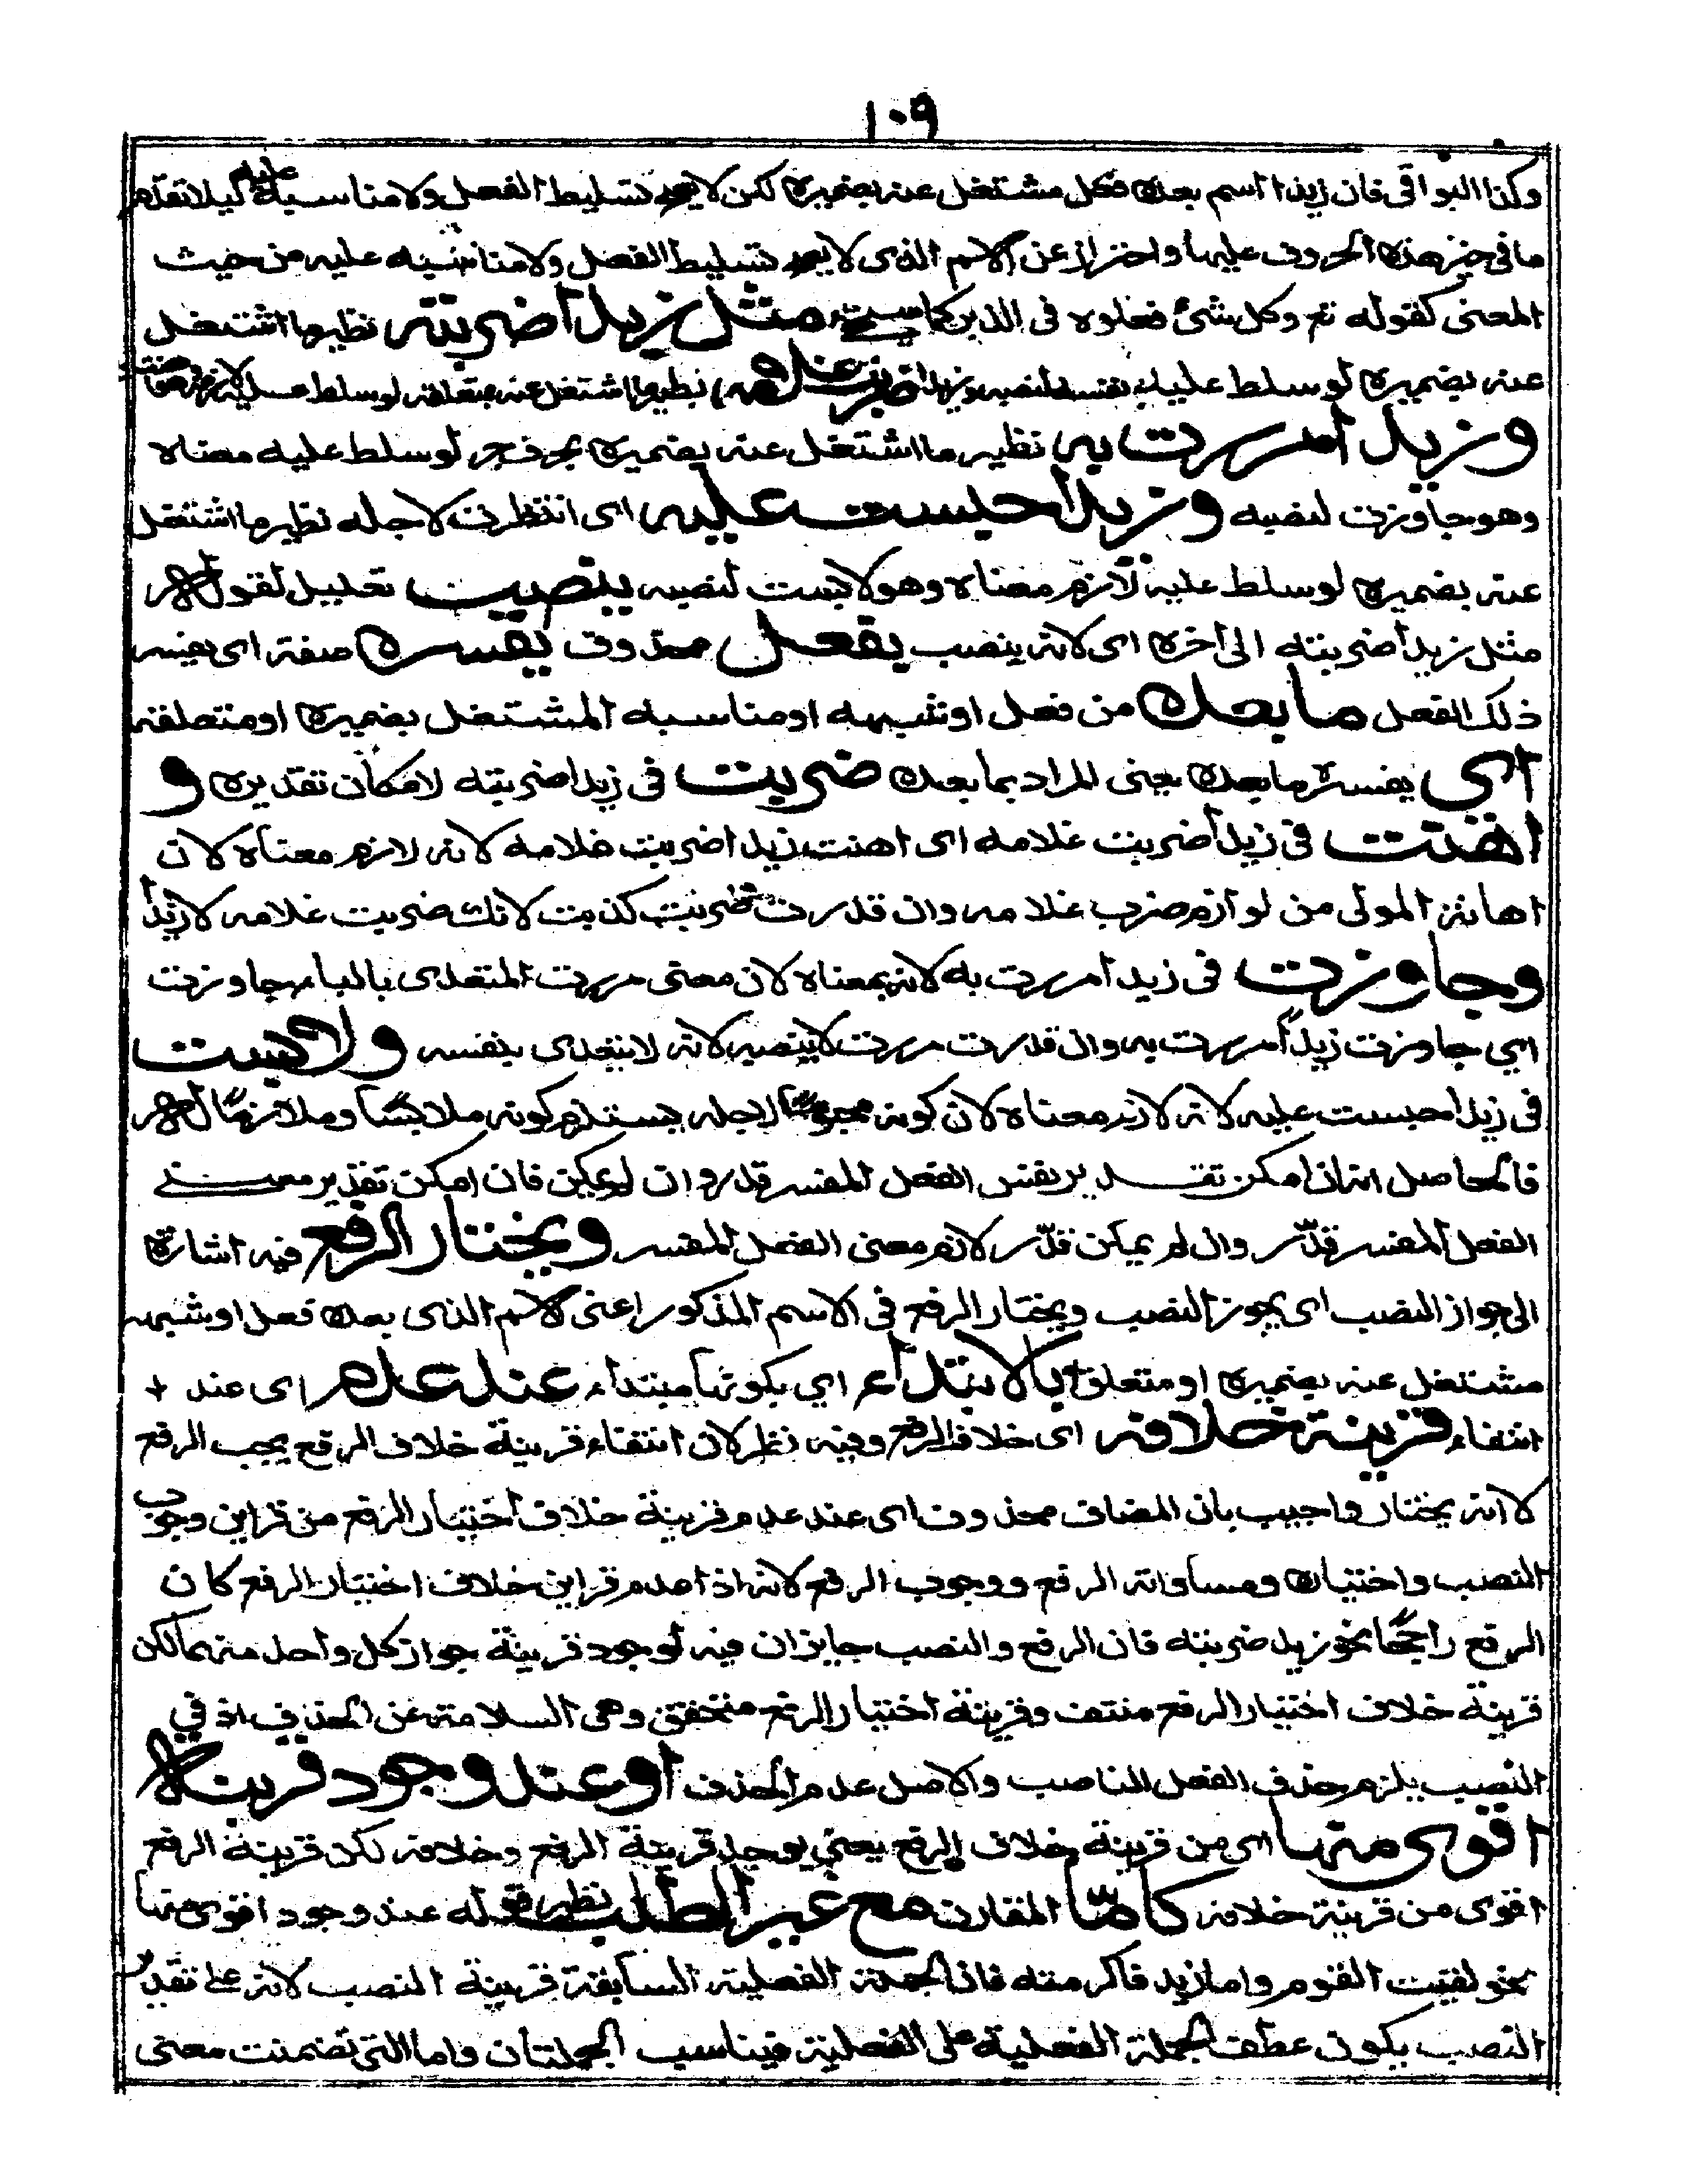 ١٠٩
وكذا البواقى فان زيدا اسم بعده فعل مشتغل عنه بضميره لكن لا يصح تسليط الفعل ولا مناسبه عليه ليلا تقدم
ما فى حيز هذه الحروف عليها واحتراز عن الاسم الذى لا يصح تسليط الفعل ولا مناسبه عليه من حيث
المعنى كقوله تع وكل شئ فعلوه فى الزبر كما سيجئ مثل زيدا ضربته نظير ما اشتغل
عنه بضميره لو سلط عليه نفسه لنصبه وزيدا ضربت غلامه نظير ما اشتغل عنه بمتعلقه لو سلط عليه لازم معناه
وزيدا مررت به نظير ما اشتغل عنه بضميره بحرف جر لو سلط عليه معناه
وهو جاوزت لنصبه وزيدا حبست عليه اى انتظرت لاجله نظير ما اشتغل
عنه بضميره لو سلط عليه لازم معناه وهو لابست لنصبه ينتصب تعليل لقولهم
مثل زيدا ضربته الى اخره اى لانه ينصب بفعل محذوف يفسره صفة اى يفسر
ذلك الفعل ما بعده من فعل او شبهه او مناسبه المشتغل بضميره او متعلقه
اى يفسره ما بعده يعنى المراد بما بعده ضربت فى زيدا ضربته لامكان تقديره و
اهنت فى زيدا ضربت غلامه اى اهنت زيدا ضربت غلامه لانه لازم معناه لان
اهانة المولى من لوازم ضرب غلامه وان قدرت ضربت كذبت لانك ضربت غلامه لا زيدا
وجاوزت فى زيدا مررت به لانه بمعناه لان معنى مررت المتعدى بالباء جاوزت
اى جاوزت زيدا مررت به وان قدرت مررت لا ينصبه لانه لا يتعدى بنفسه ولابست
فى زيدا حبست عليه لانه لازم معناه لان كونه محبوسا لاجله يستلزم كونه ملابسا وملازما لهم
فالحاصل انه ان امكن تقدير نفس الفعل المفسر قدر وان لم يمكن فان امكن تقدير معنى
الفعل المفسر قدّر وان لم يمكن قدّر لازم معنى الفعل المفسر ويختار الرفع فيه اشارة
الى جواز النصب اى يجوز النصب ويختار الرفع فى الاسم المذكور اعنى الاسم الذى بعده فعل او شبهه
مشتغل عنه بضميره او متعلقه بالابتداء اى بكونها مبتداء عند عدم اى عند
انتفاء قرينة خلافه اى خلاف الرفع وفيه نظر لان انتفاء قرينة خلاف الرفع يجب الرفع
لا انه يختار واجيب بان المضاف محذوف اى عند عدم قرينة خلاف اختيار الرفع من قراين وجوب
النصب واختياره ومساواته الرفع ووجوب الرفع لانه اذا عدم قراين خلاف اختيار الرفع كان
الرفع راجحا نحو زيد ضربته فان الرفع والنصب جايزان فيه لوجود قرينة جواز كل واحد منهما لكن
قرينة خلاف اختيار الرفع منتف وقرينة اختيار الرفع متحقق وهى السلامة عن الحذف اذ فى
النصب يلزم حذف الفعل الناصب والاصل عدم الحذف او عند وجود قرينة
اقوى منها اى من قرينة خلاف الرفع يعنى يوجد قرينة الرفع وخلافه لكن قرينة الرفع
اقوى من قرينة خلافه كامّا المقارن مع غير الطلب نظير قوله عند وجود اقوى منها
نحو لقيت القوم واما زيد فاكرمته فان الجملة الفعلية السابقة قرينة النصب لانه على تقدير
النصب يكون عطف الجملة الفعلية على الفعلية فيناسب الجملتان واما التى تضمنت معنى